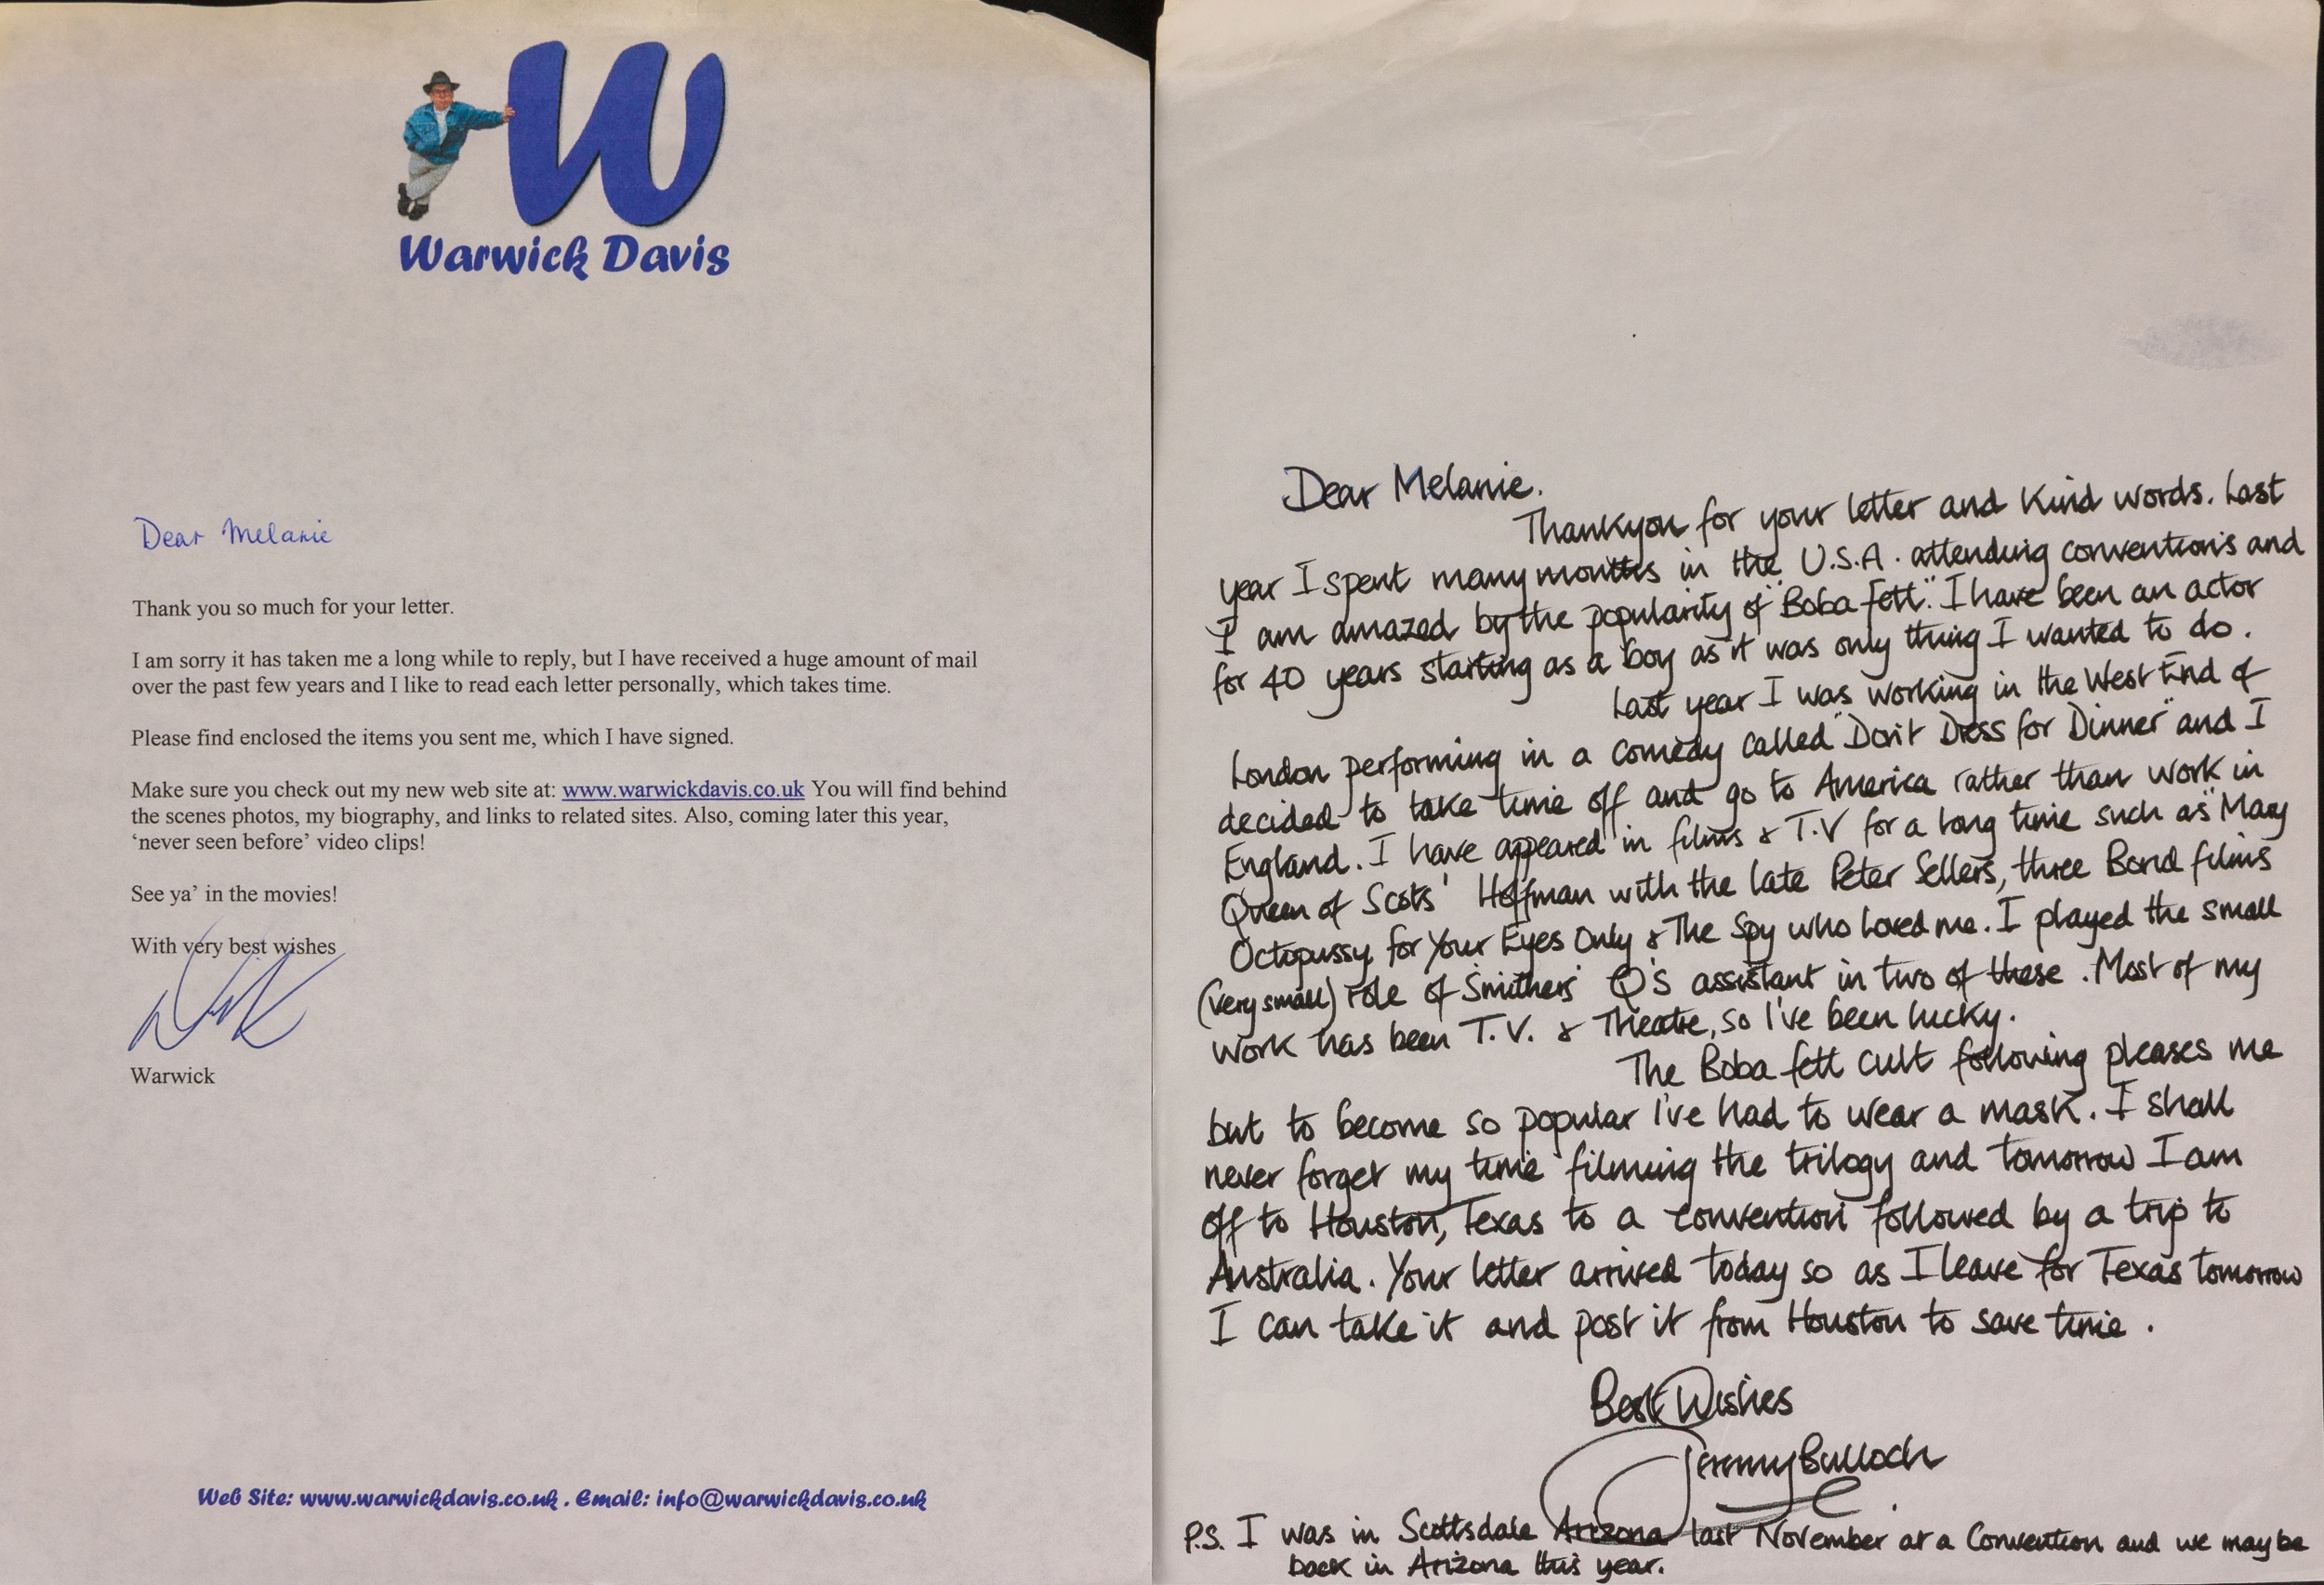 W
Warwick Davis
Dear Melanie
Thank you so much for your letter.
I am sorry it has taken me a long while to reply, but I have received a huge amount of mail
over the past few years and I like to read each letter personally, which takes time.
Please find enclosed the items you sent me, which I have signed.
Make sure you check out my new web site at: www.warwickdavis.co.uk You will find behind
the scenes photos, my biography, and links to related sites. Also, coming later this year,
‘never seen before’ video clips!
See ya’ in the movies!
With very best wishes
Warwick
Web Site: www.warwickdavis.co.uk . Email: info@warwickdavis.co.uk
Dear Melanie.
Thankyou for your letter and kind words. Last
year I spent many months in the U.S.A. attending conventions and
I am amazed by the popularity of "Boba Fett". I have been an actor
for 40 years starting as a boy as it was only thing I wanted to do.
Last year I was working in the West End of
London performing in a comedy called "Don't Dress for Dinner" and I
decided to take time off and go to America rather than work in
England. I have appeared in films & T.V for a long time such as "Mary
Queen of Scots' Hoffman with the late Peter Sellers, three Bond films
Octopussy, for Your Eyes Only & The Spy who loved me. I played the small
(very small) role of 'Smithers' Q's assistant in two of these. Most of my
work has been T.V. & Theatre, so I've been lucky.
The Boba fett cult following pleases me
but to become so popular I've had to wear a mask. I shall
never forget my time filming the trilogy and tomorrow I am
off to Houston, Texas to a convention followed by a trip to
Australia. Your letter arrived today so as I leave for Texas tomorrow
I can take it and post it from Houston to save time.
Best Wishes
Jeremy Bulloch
P.S. I was in Scottsdale Arizona last November at a Convention and we maybe
back in Arizona this year.